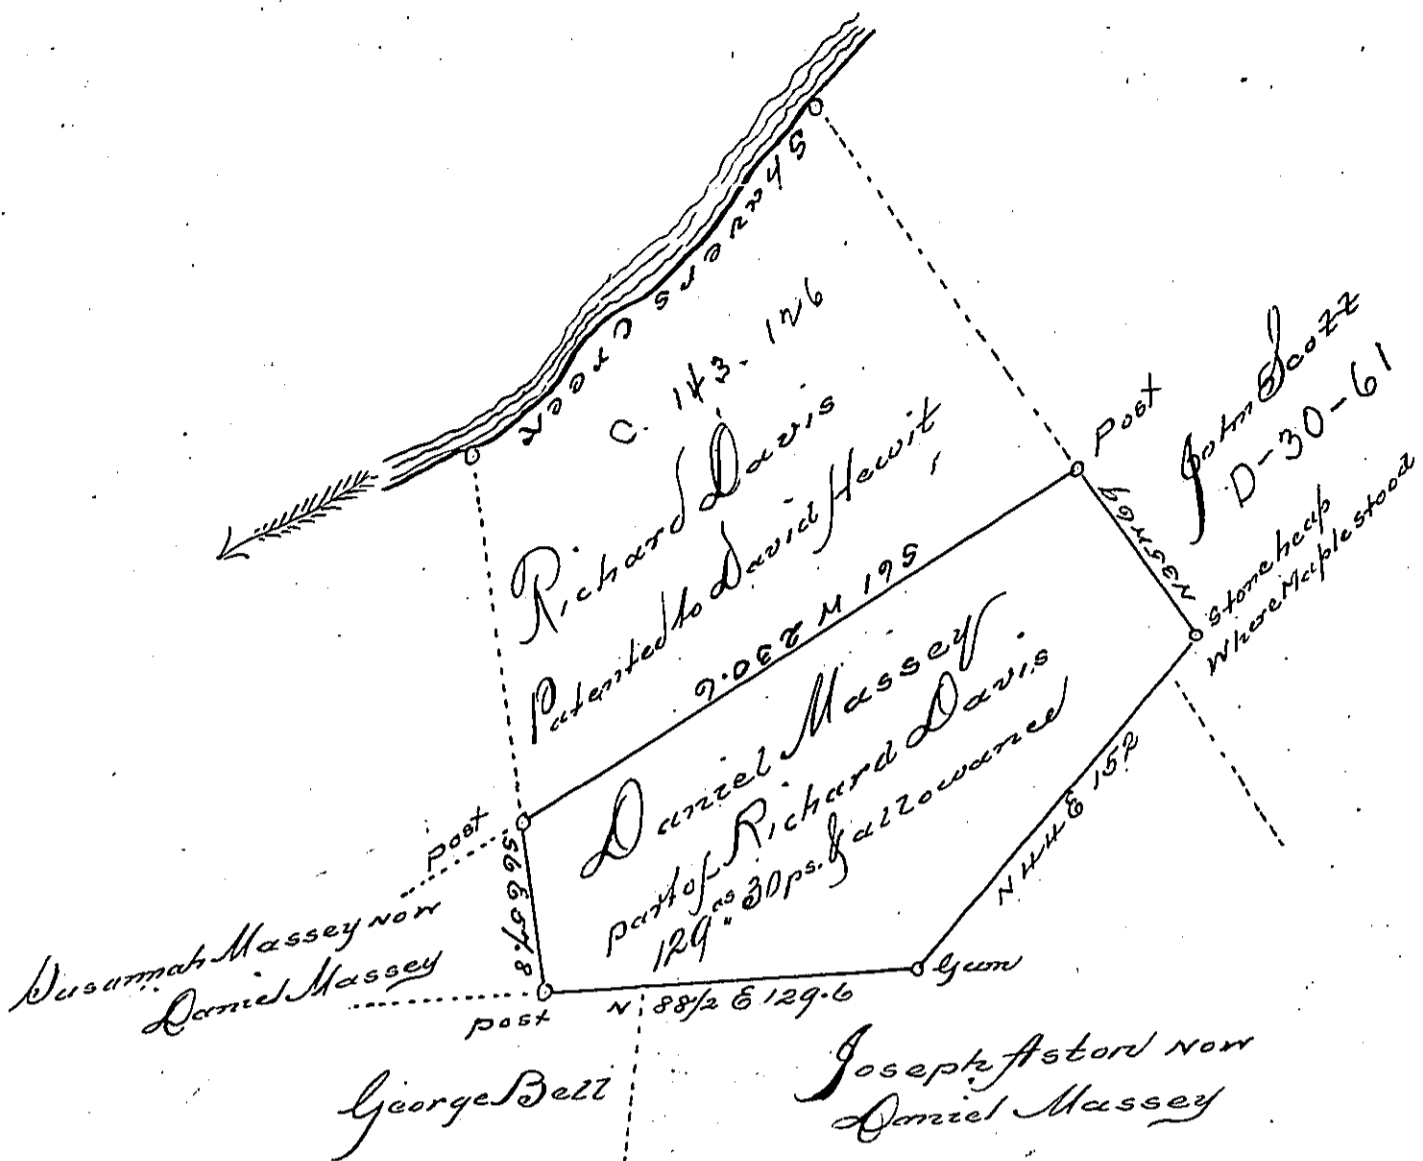 Shavers Creek
C. 143. 126
Richard Davis
Patented to David Hewit
Post
John Scott
D-30-61
N35W69
stone heap
Where Maple stood
S61 W 230.6
Daniel Massey
part of Richard Davis
129 as 30 ps. & allowance
N44 E 152
post
S6 E 57.8
Susannah Massey now
Daniel Massey
post
N 88½ E 129.6
Gum
George Bell
Joseph Aston now
Daniel Massey